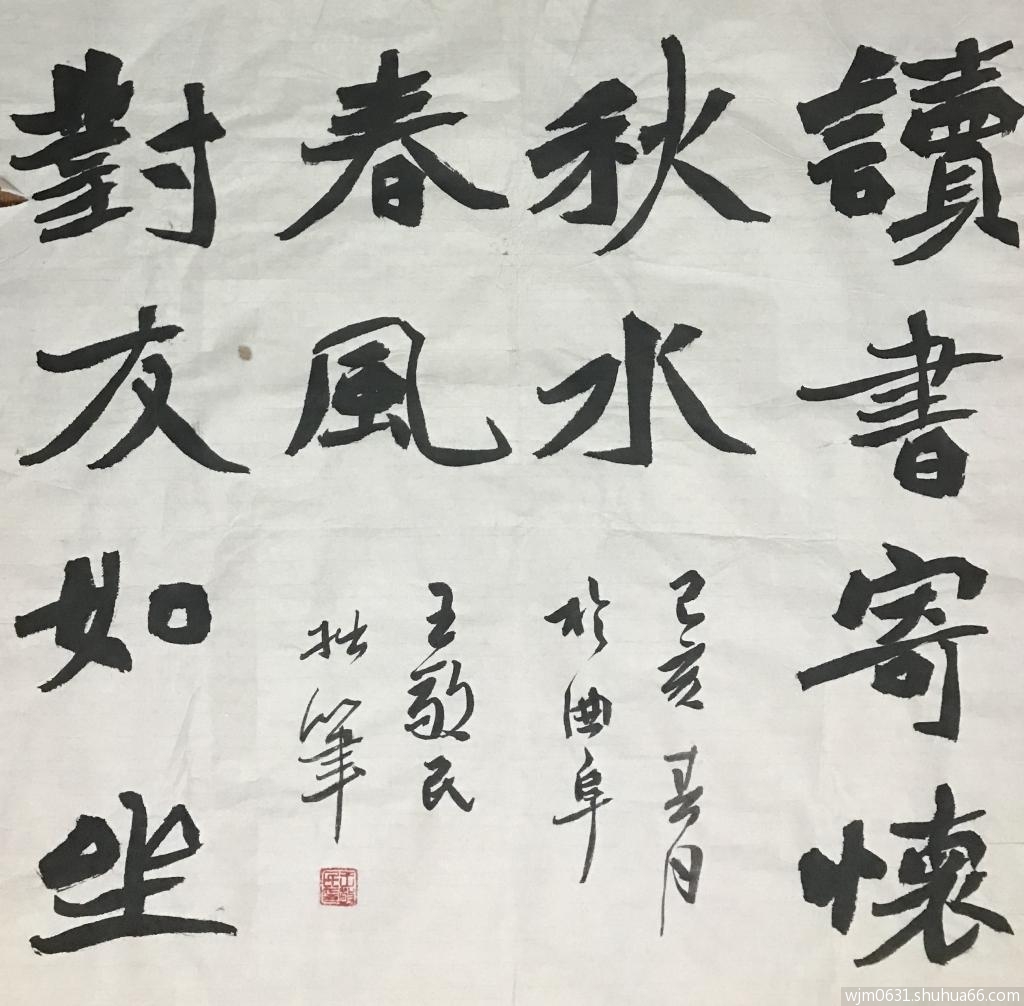 讀書寄懷
秋水
春風
對友如坐
己亥春月
於曲阜
王敬民
拙筆
wjm0631.shuhua66.com